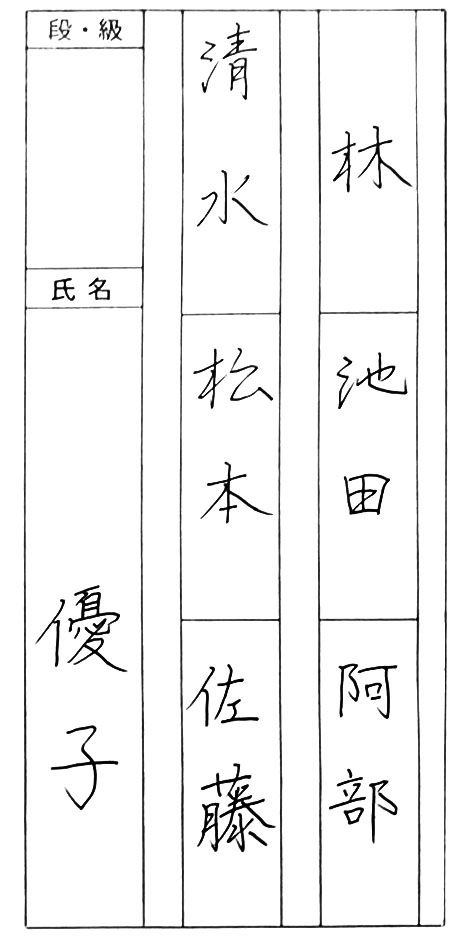 林
池田
阿部
清水
松本
佐藤
段・級
氏名
優子